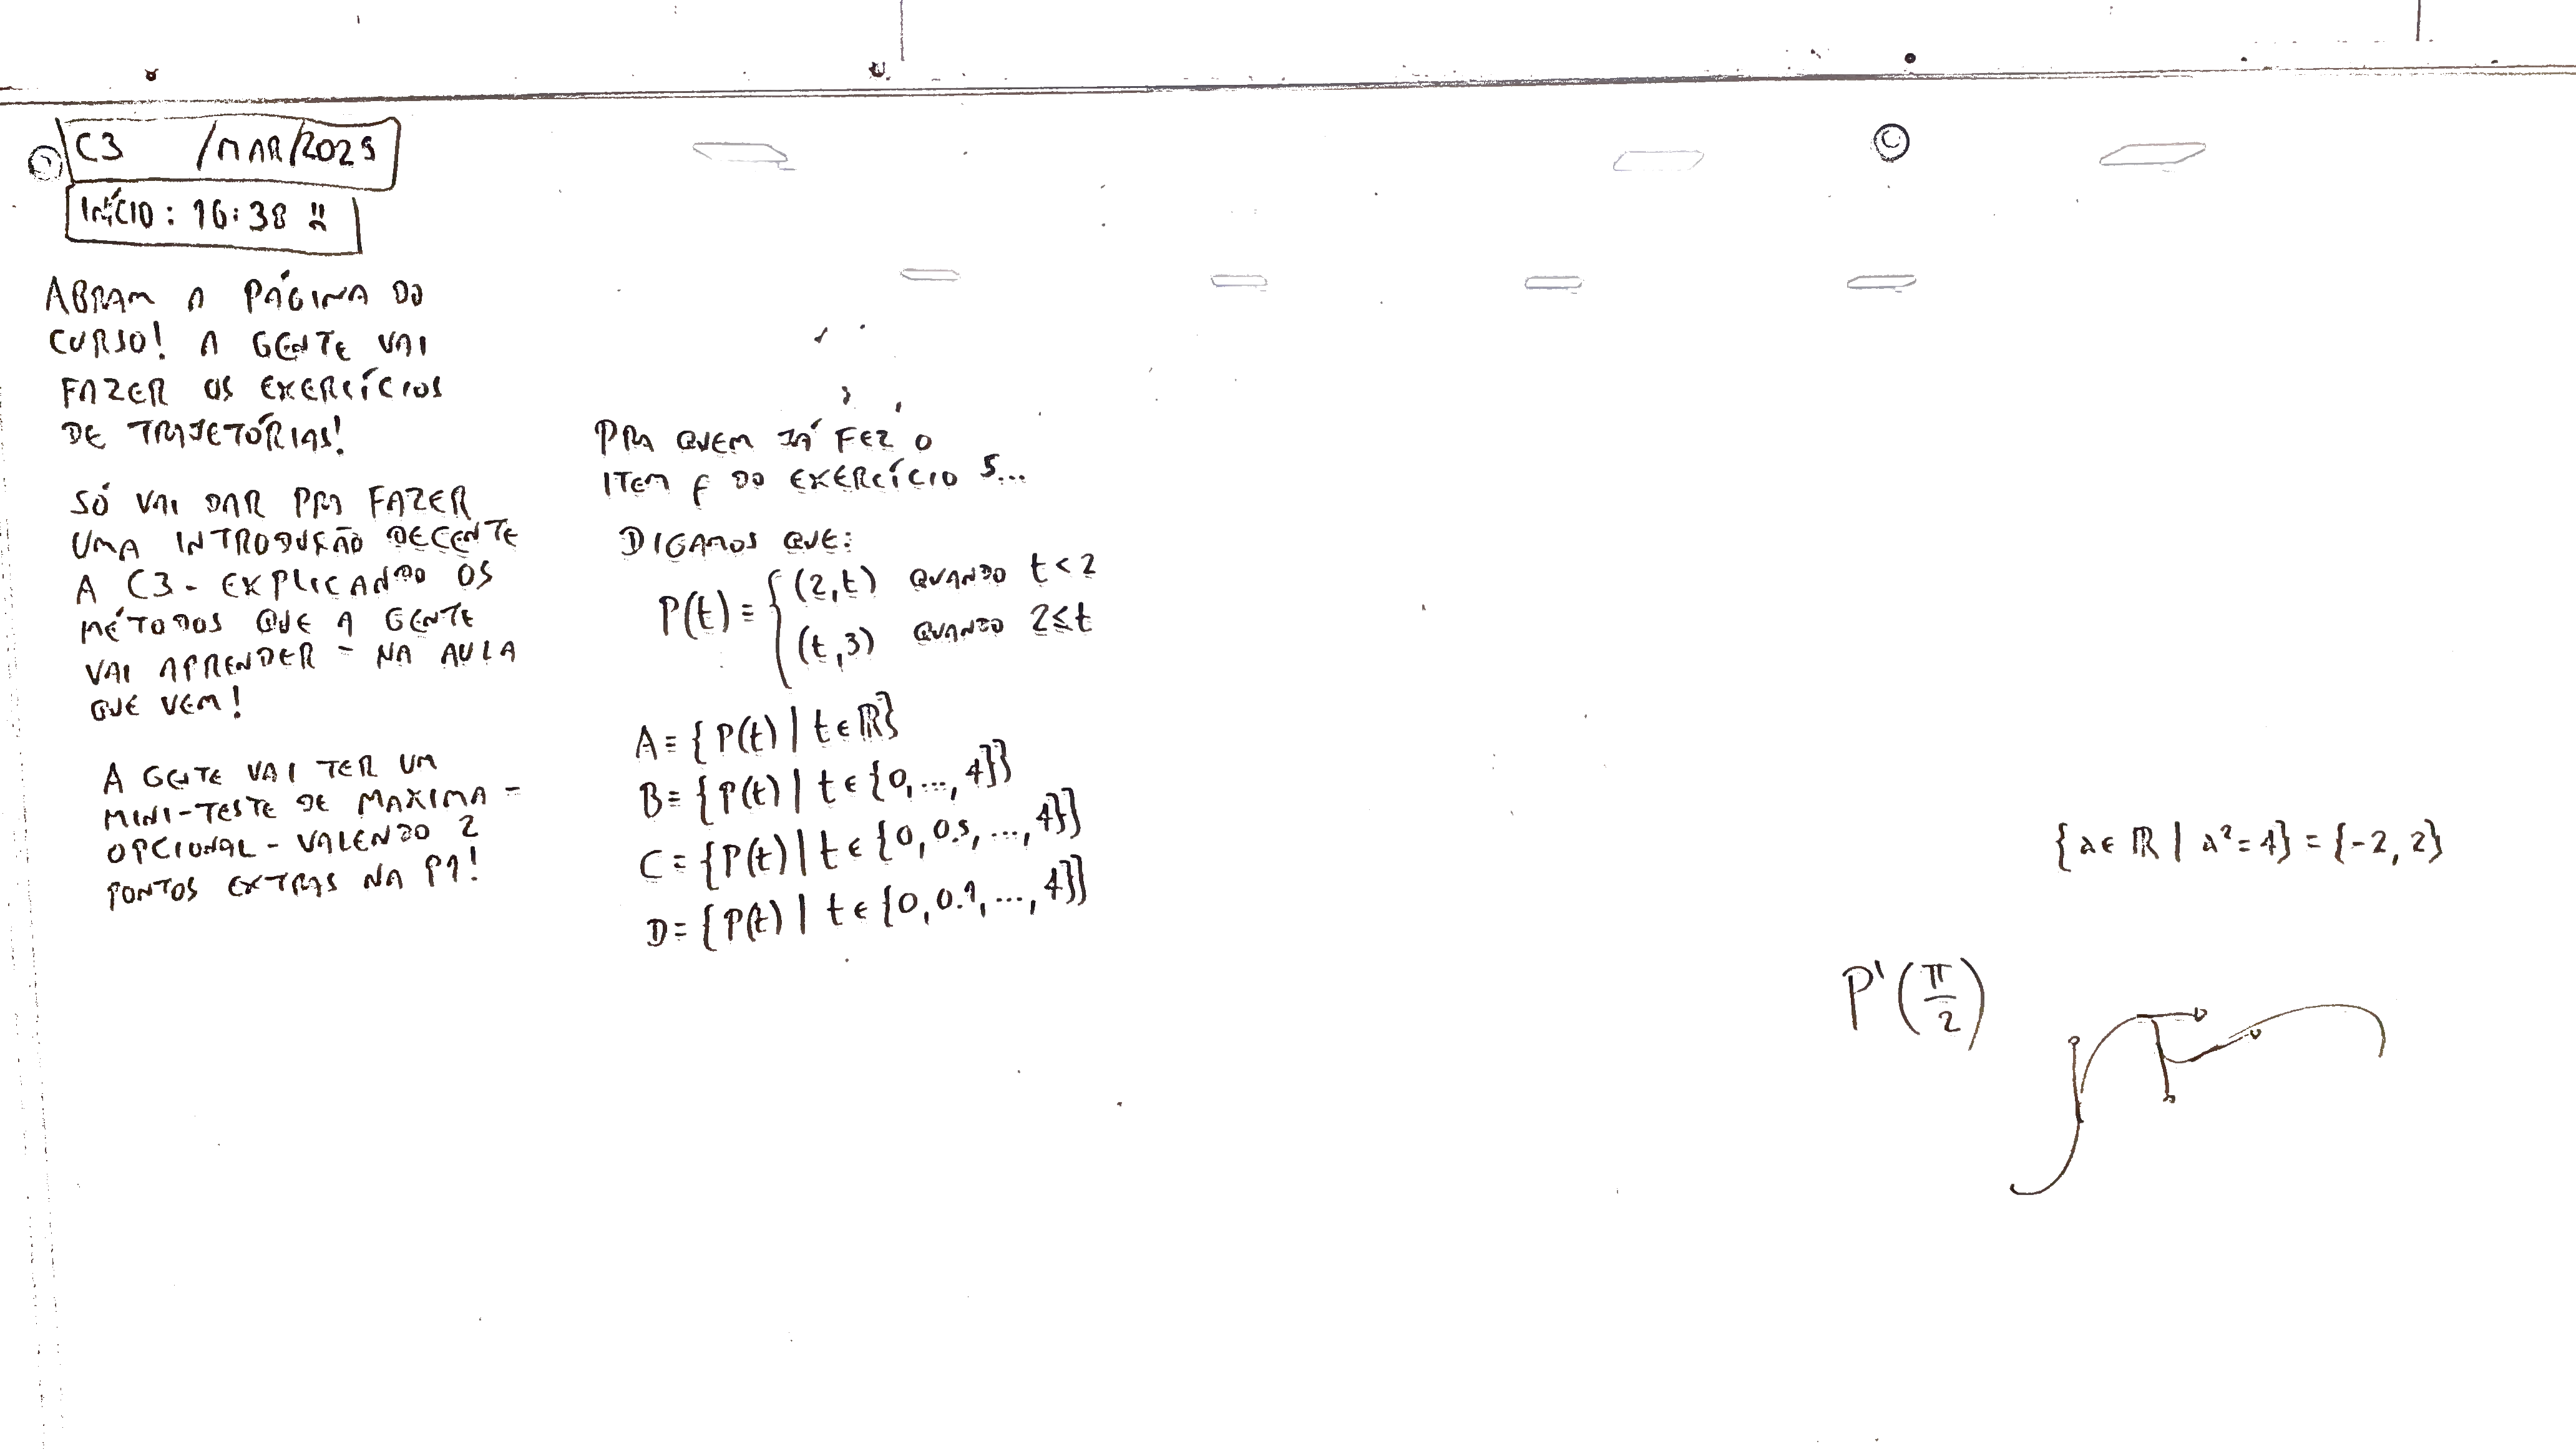 C3 /MAR/2025
INÍCIO: 16:38 !!
ABRAM A PÁGINA DO
CURSO! A GENTE VAI
FAZER OS EXERCÍCIOS
DE TRAJETÓRIAS!
SÓ VAI DAR PRA FAZER
UMA INTRODUÇÃO DECENTE
A C3 - EXPLICANDO OS
MÉTODOS QUE A GENTE
VAI APRENDER - NA AULA
QUE VEM!
A GENTE VAI TER UM
MINI-TESTE DE MAXIMA -
OPCIONAL - VALENDO 2
PONTOS EXTRAS NA P1!
PRA QUEM JÁ FEZ O
ITEM f DO EXERCÍCIO 5...
DIGAMOS QUE:
P(t) = { (2,t) QUANDO t<2
(t,3) QUANDO 2≤t
A = {P(t) | t∈ℝ}
B = {P(t) | t∈{0,...,4}}
C = {P(t) | t∈{0, 0.5, ..., 4}}
D = {P(t) | t∈{0, 0.1, ..., 4}}
©
{a∈ℝ | a²=4} = {-2, 2}
P'(π/2)